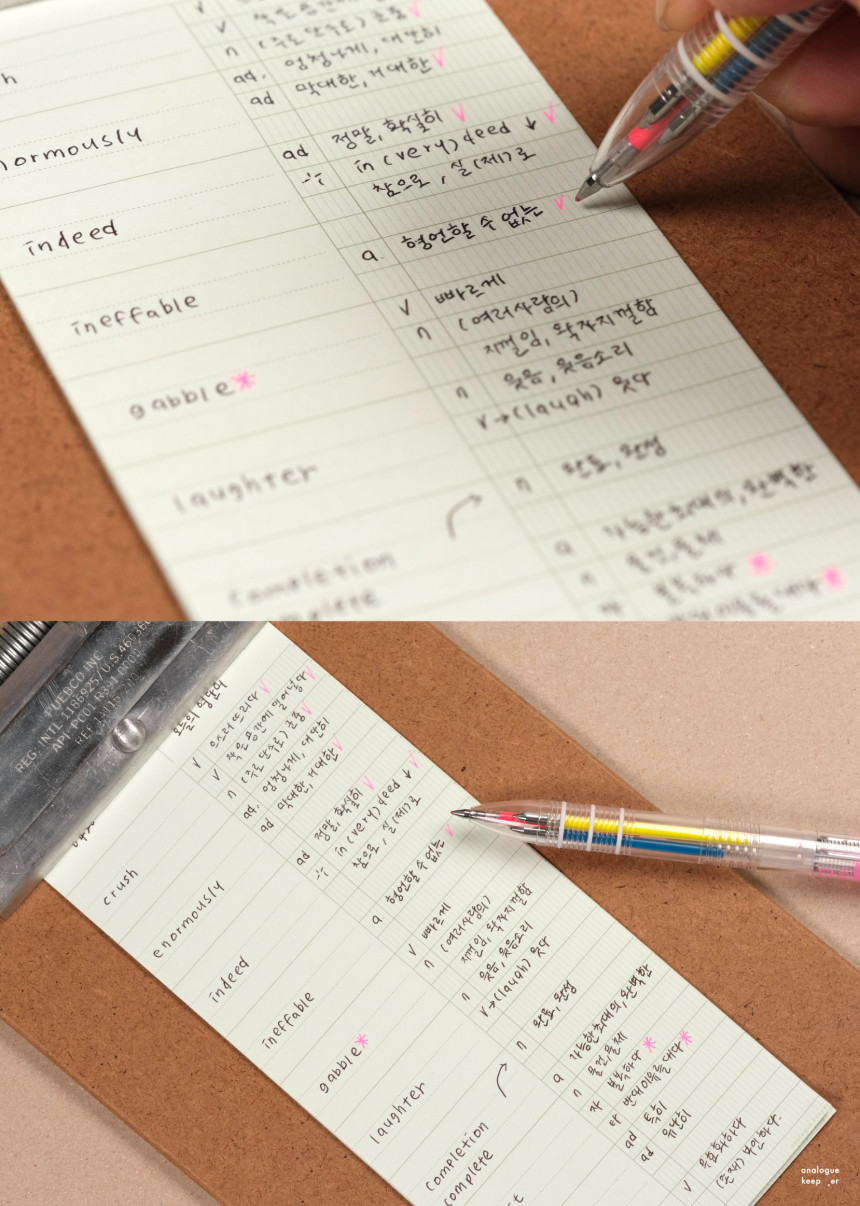 ormously
indeed
ineffable
gabble*
laughter
completion
ad. 엄청나게, 대단히
ad 막대한, 거대한 V
ad 정말, 확실히 V
in (very) deed ↓ V
참으로, 실(제)로
a. 형언할 수 없는 V
V 빠르게
n (여러사람의)
지껄임, 왁자지껄함
n 웃음, 웃음소리
V→(laugh) 웃다
n 완료, 완성
a 가능한 최대의, 완벽한
n 물건, 물체
PUEBCO INC.
REG. INT'L 1186925/U.S.
오늘의 영단어
crush
enormously
indeed
ineffable
gabble*
laughter
completion
complete
V 으스러뜨리다 V
V 작은 공간에 밀어넣다 V
n (주로 단수로) 군중 V
ad. 엄청나게, 대단히
ad 막대한, 거대한 V
ad 정말, 확실히 V
in (very) deed ↓ V
참으로, 실(제)로
a 형언할 수 없는 V
V 빠르게
n (여러사람의)
지껄임, 왁자지껄함
n 웃음, 웃음소리
V→(laugh) 웃다
n 완료, 완성
a 가능한 최대의, 완벽한
n 물건, 물체
자 불복하다 *
타 반대이유를 대다 *
ad 특히
ad 유난히
V 무효화하다
(존재) 부인하다.
analogue
keep_er